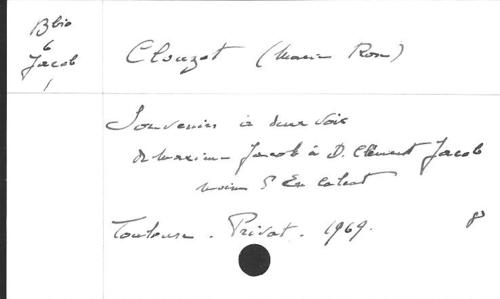 Bbio
6
Jacob
1
Clouzot (Marie Rose)
Souvenirs à deux voix
de Maxime Jacob à D. Clément Jacob
moine
Toulouse. Privat. 1969.